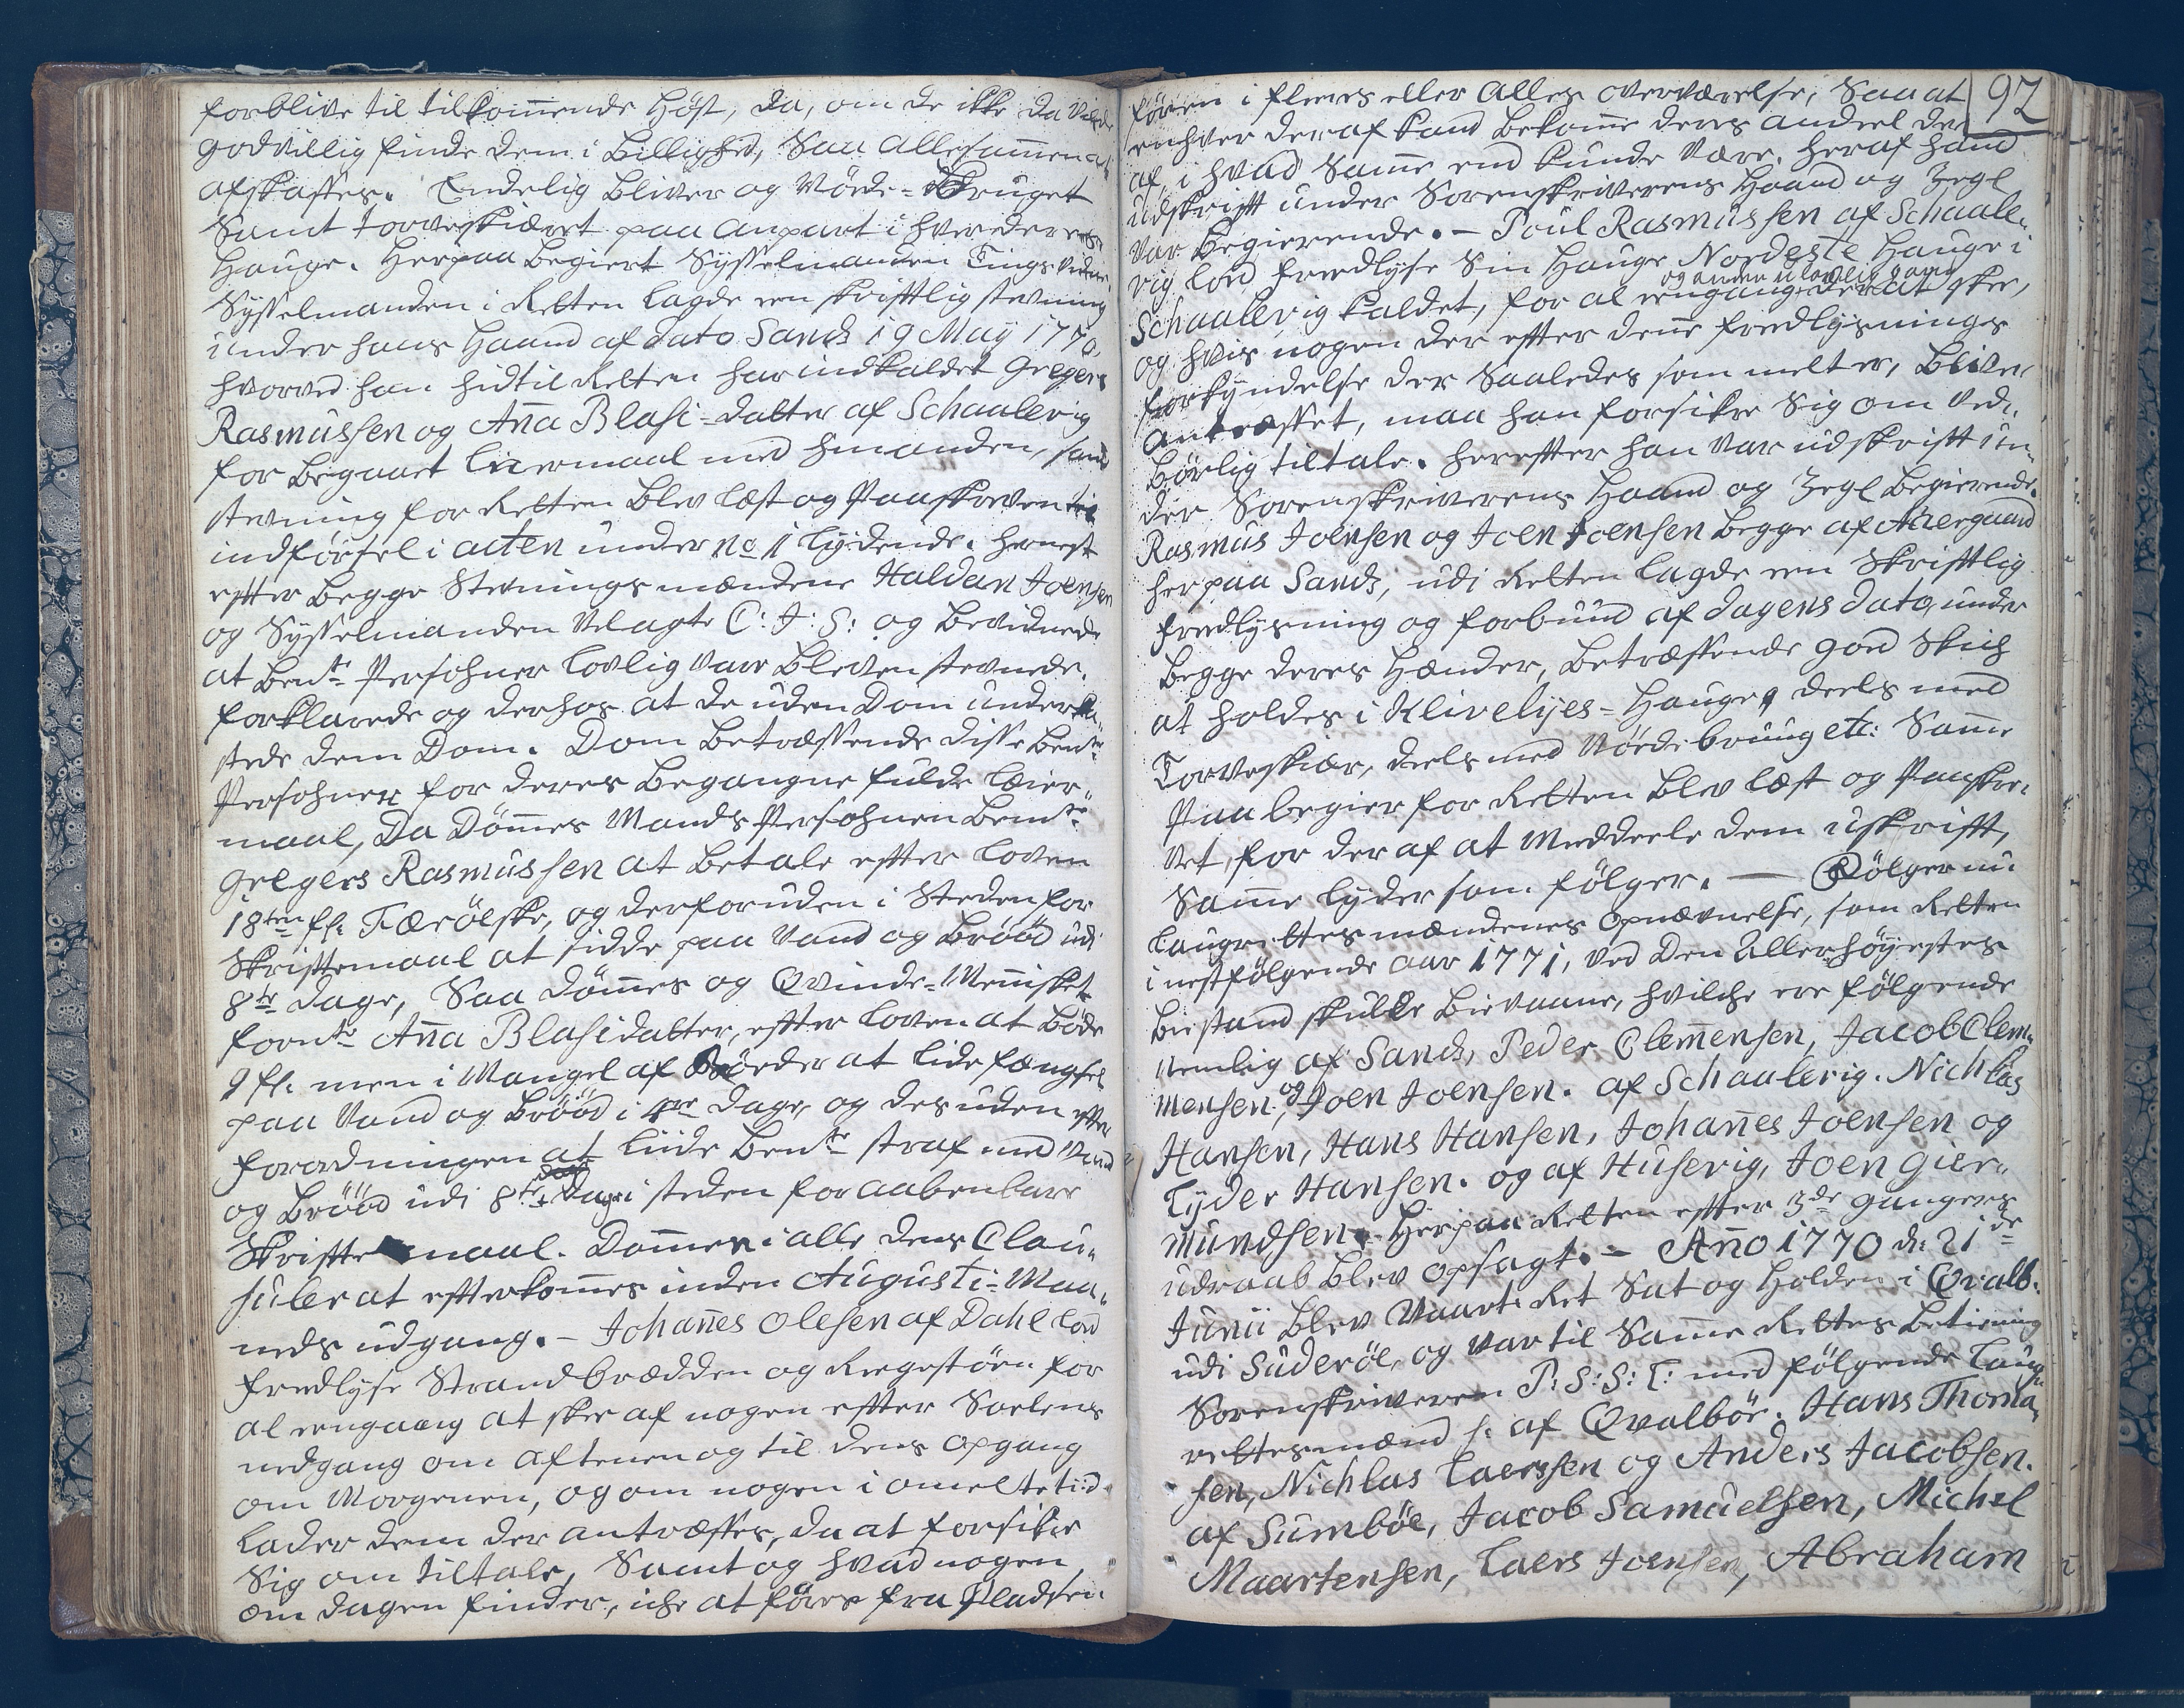 forblive til tilkom̄ende Høst, da, om de ikke da vilde
godvillig finde dem i Billighed, Saa allesam̄en at
afskaffes. Endelig bliver og Nøde-Bruget
Samt Torveskiæret paa anpart i hver deres
Hauge. Herpaa begiert Sysselmanden Tingsvidne.
Sysselmanden i Retten lagde een skrifftlig stevning
under hans Haand af dato Sands 19 May 1770,
hvorved han hidtil Retten har indkaldet Gregers
Rasmussen og An̄a Blasi-datter af Schaalevig
for begaaet leiermaal med hinanden, samme
stevning for Retten blev læst og Paaskreven til
indførsel i acten under No 1 lydende. Hernest
efter begge Stevningsmændene Haldan Joensen
og Sysselmanden aflagte C: J: S: og bevidnede
at bem.te Persohner lovlig var bleven stevnede.
forklarede og derhos at de uden Dom under ka-
stede dem Dom. Dom betræffende disse bem.te
Persohner for deres begangne fulde leier-
maal, da Døm̄es Mands Persohnen bem.te
Gregers Rasmussen at betale efter loven
18ten fl: Færøiske, og desforuden i Steden for
Skriftemaal at sidde paa Vand og Brød udi
8te dage, Saa døm̄es og Qvinde-Men̄isket
forn.te An̄a Blasidatter, efter loven at bøde
9 fl. men i Mangel af Bøder at lide fængsel
paa Vand og Brød i 4re dage, og desuden efter
forordningen at liide bem.te straf med Vand
og Brød udi 8te dage i steden for aabenbare
Skriftemaal. Dom̄en i alle dens Clau-
suler at efterkom̄es inden Augusti-Maa-
neds udgang. – Johan̄es Olesen af Dahl lod
fredlyse Strandbredden og Regestøen for
al eengang at skee af nogen efter Soelens
nedgang om Aftenen og til dens opgang
om Morgenen, og om nogen i omelte tiid
lader dem der antræffes, da at forsikre
Sig om tiltale, Samt og hvad nogen
om dagen finder, iche at føres fra Pladsen
92
føren i fleeres eller alles overværelse, Saa at
enhver deraf kand bekom̄e deres andeel der
af, i hvad Sam̄e end kunde være. heraf hand
udskrift under Sorenskriverens Haand og Zegl
var begierende. – Poul Rasmussen af Schaale-
vig lod fredlyse Sin Hauge Nordeste Hauge i
og anden ulovlig gang
Schaalevig kaldet, for al eengang der at skee,
og hvis nogen der efter den̄e fredlysnings
forkyndelse der Saaledes som melt er, bliver
antræffet, maa han forsikre Sig om ved-
børlig tiltale. herefter han var udskrift un-
der Sorenskriverens Haand og Zegl begierende.
Rasmus Joensen og Joen Joensen begge af Aaergaard
her paa Sands, udi Retten lagde een Skrifftlig
fredlysning og forbund af dagens dato, under
begge deres Hænder, betræffende god Skich
at holdes i Klivelyes-Hauge, deels med
Torveskiær, deels med Nødebrug etc: Sam̄e
Paa begier for Retten blev læst og Paaskre-
vet, for deraf at Meddeele dem udskrift,
Sam̄e lyder som følger. — Følger nu
Laugrettesmændenes Opnævnelse, som Retten
i nestfølgende aar 1771, ved Den Allerhøyestes
Biestand skulle Bievaane, hvilche ere følgende
Nemlig af Sands, Peder Clem̄ensen, Jacob Clem-
mensen, og Joen Joensen. af Schaalevig. Nichlas
Hansen, Hans Hansen, Johan̄es Joensen og
Tyder Hansen. og af Husevig, Joen Gier-
mundsen. Herpaa Retten efter 3de ganges
udraab blev opsagt. – An̄o 1770 d: 21de
Junii blev Vaart-Ret Sat og holden i Qvalb.
udi Suderøe, og var til Sam̄e Rettes betiening
Sorenskriveren P: S: S: T: med følgende Laug-
rettesmænd s: af Qvalbøe. Hans Thoma-
sen, Nichlas Laerssen og Anders Jacobsen.
af Sumbøe, Jacob Samuelsen, Michel
Maartensen, Laers Joensen, Abraham